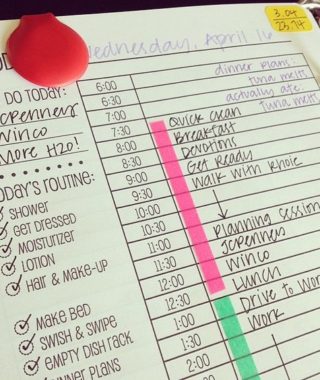 Wednesday, April 16
3.04
23.74
DO TODAY:
JCPenneys
Winco
More H2O!
dinner plans:
tuna melts
actually ate:
tuna melts
6:00
6:30
7:00
7:30 Quick clean
8:00 Breakfast
8:30 Devotions
9:00 Get Ready
9:30 Walk with
10:00
10:30
11:00 Planning session
11:30 JCPenneys
12:00 Winco
12:30 Lunch
1:00 Drive to work
1:30 Work
2:00
ODAY'S ROUTINE:
SHOWER
GET DRESSED
MOISTURIZER
LOTION
HAIR & MAKE-UP
MAKE BED
SWISH & SWIPE
EMPTY DISH RACK
DINNER PLANS